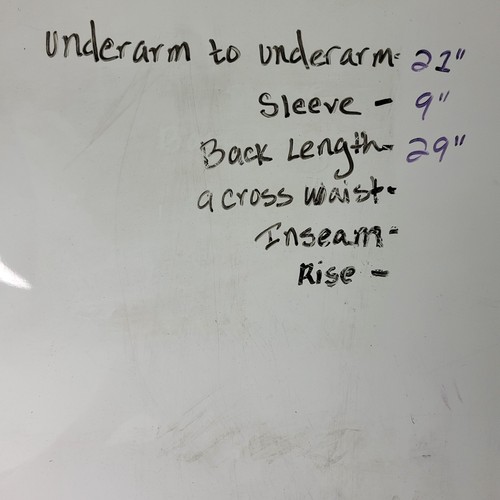 underarm to underarm- 21"
Sleeve - 9"
Back Length- 29"
across waist-
Inseam-
Rise -